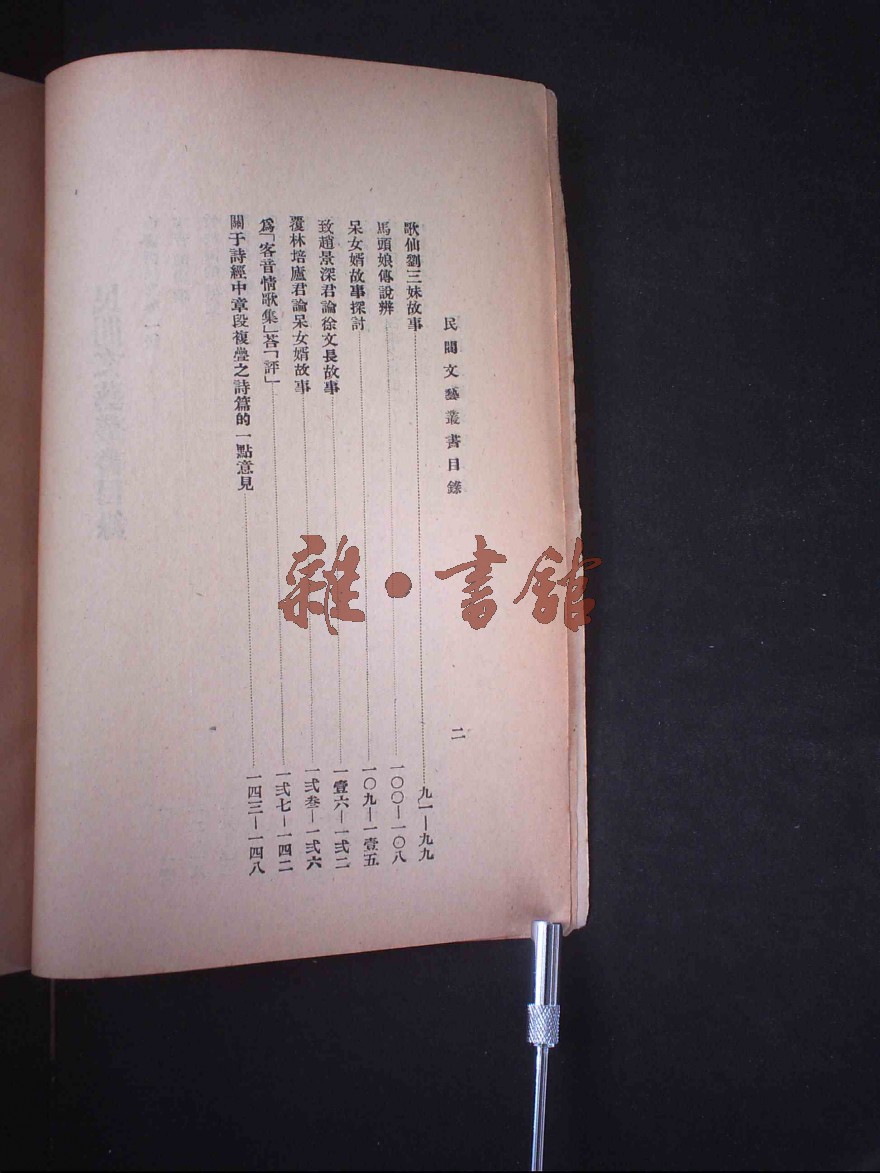 民間文藝叢書目錄
二
歌仙劉三妹故事……九一—九九
馬頭娘傳說辨……一〇〇—一〇八
呆女婿故事探討……一〇九—一壹五
致趙景深君論徐文長故事……一壹六—一弍二
覆林培廬君論呆女婿故事……一弍叁—一弍六
爲「客音情歌集」荅「評」……一弍七—一四二
關于詩經中章段複疊之詩篇的一點意見……一四三—一四八
雜·書館